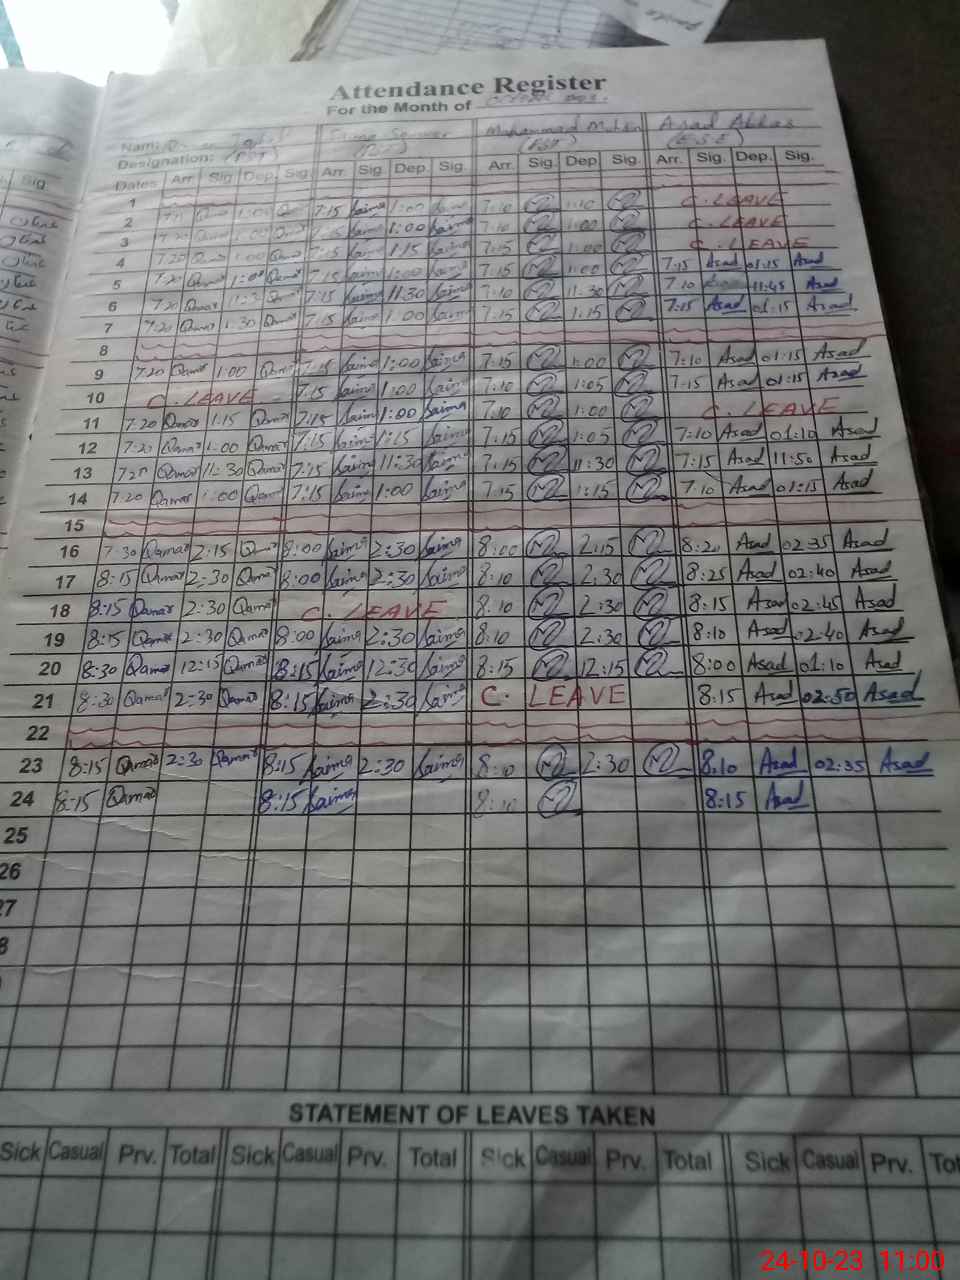 Attendance Register
For the Month of October
Name: Muhammad Mohsin Asad Abbas
Designation: (PST) (E.S.E)
Dates Arr. Sig Dep. Sig. Arr. Sig Dep. Sig. Arr. Sig. Dep. Sig. Arr. Sig. Dep. Sig.
1
2 Qamar 1:00 7:15 Saima 1:00 Saima 7:10 1:10 C. LEAVE
3 7:20 Qamar 1:00 Qamar 7:15 Saima 1:00 Saima 7:10 1:00 C. LEAVE
4 7:20 Qamar 1:00 Qamar 7:15 Saima 1:15 Saima 7:15 1:00 C. LEAVE
5 7:20 Qamar 1:00 Qamar 7:15 Saima 1:00 Saima 7:15 1:00 7:15 Asad 01:15 Asad
6 7:20 Qamar Qamar 7:15 Saima 11:30 Saima 7:10 11:30 7:10 11:45 Asad
7 7:20 Qamar 1:30 Qamar 7:15 Saima 1:00 Saima 7:15 1:15 7:15 Asad 01:15 Asad
8
9 7:20 Qamar 1:00 Qamar 7:15 Saima 1:00 Saima 7:15 1:00 7:10 Asad 01:15 Asad
10 C. LEAVE 7:15 Saima 1:00 Saima 7:10 1:05 7:15 Asad 01:15 Asad
11 7:20 Qamar 1:15 Qamar 7:15 Saima 1:00 Saima 7:10 1:00 C. LEAVE
12 7:20 Qamar 1:00 Qamar 7:15 Saima 1:15 Saima 7:15 1:05 7:10 Asad 01:10 Asad
13 Qamar 11:30 Qamar 7:15 Saima 11:30 Saima 7:15 11:30 7:15 Asad 11:50 Asad
14 7:20 Qamar 1:00 Qamar 7:15 Saima 1:00 Saima 7:15 1:15 7:10 Asad 01:15 Asad
15
16 7:30 Qamar 2:15 Qamar 8:00 Saima 2:30 Saima 8:00 2:15 8:20 Asad 02:35 Asad
17 8:15 Qamar 2:30 Qamar 8:00 Saima 2:30 Saima 8:10 2:30 8:25 Asad 02:40 Asad
18 8:15 Qamar 2:30 Qamar C. LEAVE 8:10 2:30 8:15 Asad 02:45 Asad
19 8:15 Qamar 2:30 Qamar 8:00 Saima 2:30 Saima 8:10 2:30 8:10 Asad 02:40 Asad
20 8:30 Qamar 12:15 Qamar 8:15 Saima 12:30 Saima 8:15 12:15 8:00 Asad 01:10 Asad
21 8:30 Qamar 2:30 Qamar 8:15 Saima 2:30 Saima C. LEAVE 8:15 Asad 02:50 Asad
22
23 8:15 Qamar 2:30 Qamar 8:15 Saima 2:30 Saima 8:10 2:30 8:10 Asad 02:35 Asad
24 8:15 Qamar 8:15 Saima 8:10 8:15 Asad
25
26
27
8
STATEMENT OF LEAVES TAKEN
Sick Casual Prv. Total Sick Casual Prv. Total Sick Casual Prv. Total Sick Casual Prv. Tot
24-10-23 11:00